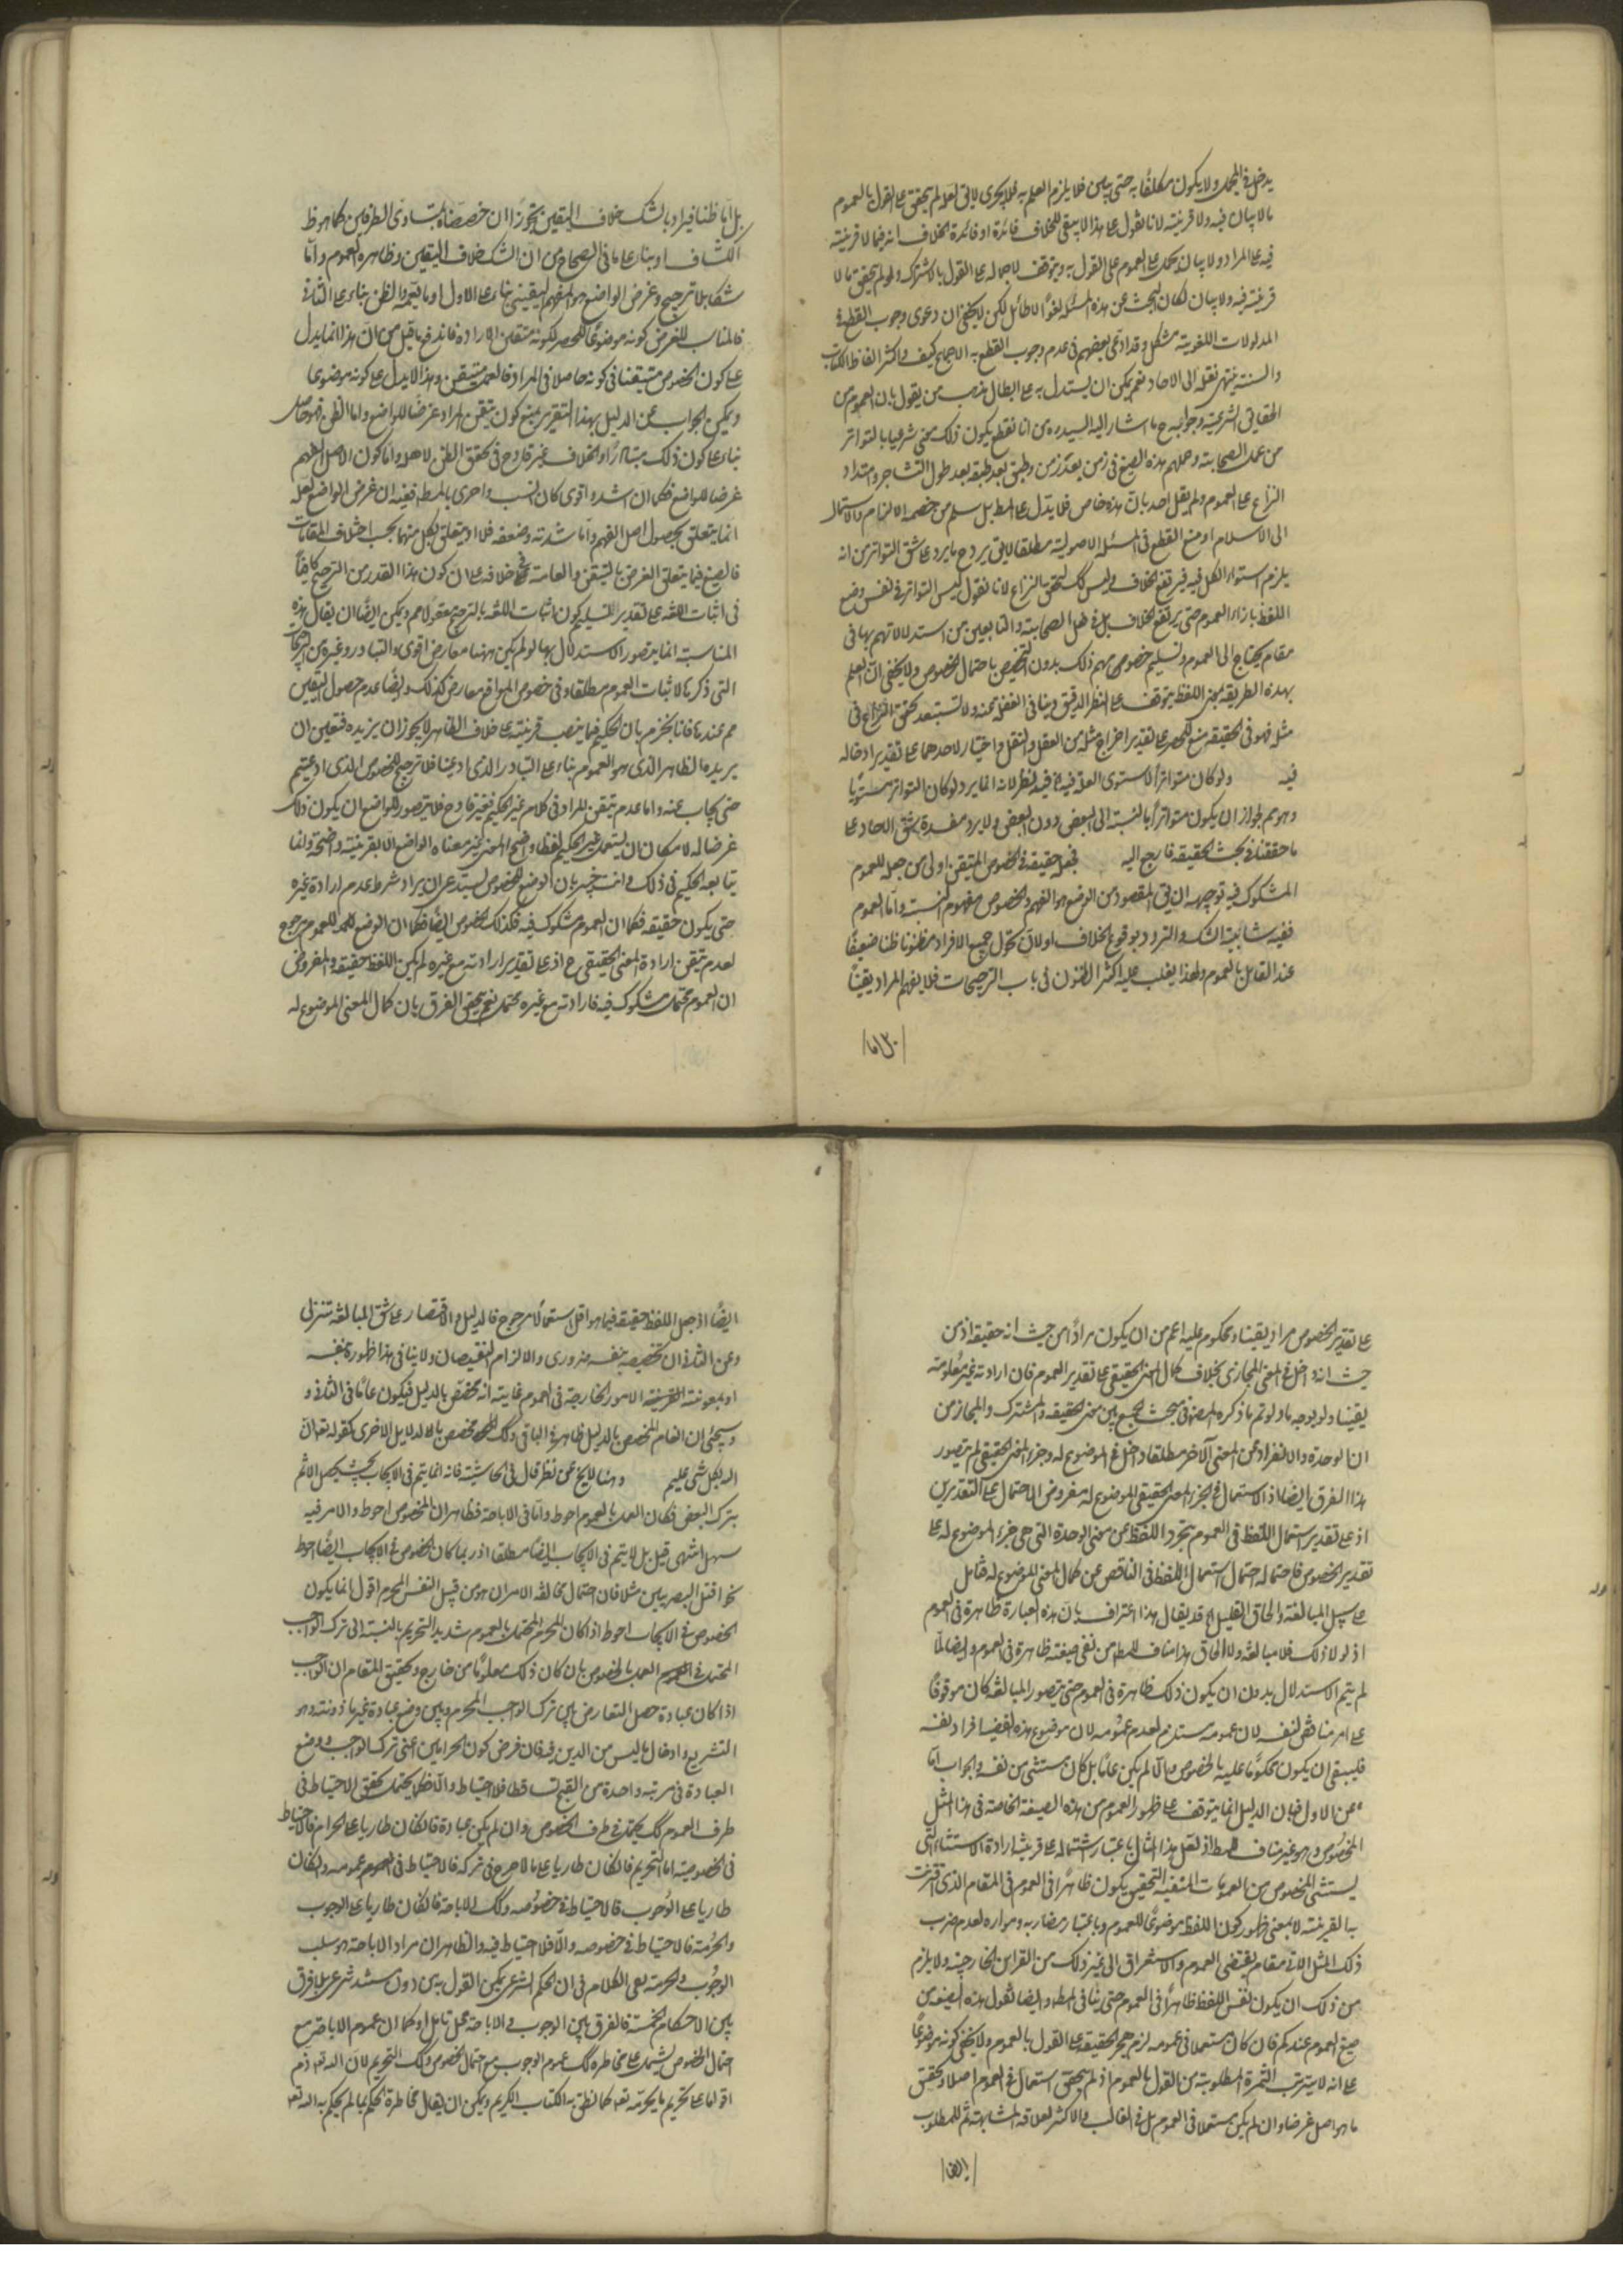 يدخل في المجمل ولا يكون مكلفًا به حتى يبين فلا يلزم العلم به فلا يجرى لا يقال لو لم يتحقق على القول بالعموم
ما لا بيان فيه ولا قرينة لانا نقول على هذا لا يبقى للخلاف فائدة او فائدة الخلاف انه فيما لا قرينة
فيه على المراد ولا بيان يحمل على العموم على القول به ويتوقف لاجماله على القول بالاشتراك ولو لم يتحقق ما لا
قرينة فيه ولا بيان لكان البحث عن هذه المسئلة لغوًا لا طائل لكن لا يخفى ان دعوى وجوب القطع في
المدلولات اللغوية مشكل وقد ادعى بعضهم في عدم وجوب القطع به الاجماع كيف واكثر الفاظ الكتاب
والسنة ينتهى نقله الى الاحاد نعم يمكن ان يستدل به على ابطال مذهب من يقول بان العموم من
الحقايق الشرعية وجوابه ح ما اشار اليه السيد ره من انا نقطع بكون ذلك معنى شرعيا بالتواتر
من عمل الصحابة وحملهم هذه الصيغ في زمن بعد زمن وطبق بعد طبقة بعد طول التشاجر وامتداد
النزاع على العموم ولم يقل احد بان هذه خاص فلا يدل على المط بل سلم من خصمه الالزام والاستمال
الى الاسلام او منع القطع في المسئلة الاصولية مطلقا لا يقال يرد ح ما يرد على شق التواتر من انه
يلزم استواء الكل فيه فيرتفع الخلاف وليس كك لتحقق النزاع لانا نقول ليس التواتر في نفس وضع
اللفظ بازاء العموم حتى يرتفع الخلاف بل في فعل الصحابة والتابعين من استدلالاتهم بها في
مقام يحتاج الى العموم وتسليم خصومهم ذلك بدون التخصيص باحتمال الخصوص ولا يخفى ان العلم
بهذه الطريقة بمعنى اللفظ يتوقف على النظر الدقيق وينافى الغفلة عنه ولا تستبعد تحقق النزاع في
مثله فهو في الحقيقة منع للحصر على تقدير اخراج مثله من العقل والنقل واختيار لاحدهما على تقدير ادخاله
فيه ولو كان متواترًا لاستوى العلة فيه فيه نظر لانه انما يرد لو كان التواتر مستويًا
وهو مم لجواز ان يكون متواترًا بالنسبة الى البعض دون البعض ولا يرد مفسدة شق الاحاد على
ما حققناه في بحث الحقيقة فارجع اليه فجعله حقيقة في الخصوص المتيقن اولى من جعله للعموم
المشكوك فيه توجيهه ان يقال المقصود من الوضع هو الفهم والخصوص مفهوم البتة واما العموم
ففيه شائبة الشك والتردد بوقوع الخلاف اولا لان تحول جميع الافراد مظنون ظنا ضعيفًا
عند القائل بالعموم ولهذا يغلب عليه اكثر الظنون في باب الترجيحات فلا يفهم المراد يقينًا
بل اما ظنا فيراد بالشك خلاف اليقين تجوزًا ان خصصناه بتساوى الطرفين كما هو ظ
الكشاف او بناء على ما في الصحاح من ان الشك خلاف اليقين وظاهره العموم واما
شكا بلا ترجيح وغرض الواضع هو الفهم اليقينى بناء على الاول او ما يقرب الظن بناء على الثانى
فالمناسب للغرض كونه موضوعًا للخصوص لكونه متيقن الارادة فاندفع ما قيل من ان هذا انما يدل
على كون الخصوص متيقنا في كونه حاصلا في المراد فالعمل متيقن وهذا لا يدل على كونه موضوعا
ويمكن الجواب عن الدليل بهذا التقرير بمنع كون تيقن المراد غرضا للواضع واما الظن فهو حاصل
بناء على كون ذلك متبادرًا والخلاف غير قادح في تحقق الظن لاهله واما كون الاصل الفهم
غرضا للواضع فكما ان اشده اقوى كان انسب واحرى بالمط ففيه ان غرض الواضع لعله
انما يتعلق بحصول اصل الفهم واما شدته وضعفه فلا او يتعلق بكل منهما بحسب اختلاف المقامات
فالصيغ فيما يتعلق الغرض بالتيقن والعامة في خلافه على ان كون هذا القدر من الترجيح كافيًا
في اثبات اللغة على تقدير تسليم كون اثبات اللغة بالترجيح معقولا مم ويمكن ايضًا ان يقال هذه
المناسبة انما يتصور الاستدلال بها لو لم يكن ههنا معارض اقوى والتبادر وغيره من
التى ذكرنا لاثبات العموم مطلقا وفي خصوص المواقع معارض كذلك وايضا عدم حصول اليقين
مم عندنا فانا نجزم بان الحكيم فيما ينصب قرينة على خلاف الظاهر لا يجوز ان يريده فتعين ان
يريد الظاهر الذى هو العموم بناء على التبادر الذى ادعينا فلا ترجيح للخصوص الذى ادعيتم
حتى يجاب عنه واما عدم تيقن المراد في كلام غير الحكيم فغير قادح فلا يتصور للواضع ان يكون ذلك
غرضا له لامكان ان يستعمل غير الحكيم لفظا واضح المعنى في غير معناه الواضع الا بقرينة واضحة وانما
يتابعه الحكيم في ذلك وانت خبير بان الوضع للخصوص يستدعى ان يراد بشرط عدم ارادة غيره
حتى يكون حقيقة فكما ان العموم مشكوك فيه فكذلك الخصوص ايضًا فكما ان الوضع للعموم مرجوح
لعدم تيقن ارادة المعنى الحقيقى ح اذ على تقدير ارادته مع غيره لم يكن اللفظ حقيقة والمفروض
ان العموم محتمل مشكوك فيه فارادته مع غيره محتمل نعم يتحقق الفرق بان كمال المعنى الموضوع له
على تقدير الخصوص مراد يقينا ومحكوم عليه اعم من ان يكون مرادًا من حيث انه حقيقة او من
حيث انه داخل في المعنى المجازى بخلاف كمال المعنى الحقيقى على تقدير العموم فان ارادته غير معلومة
يقينا ولو بوجه ما ولو تم ما ذكره المصنف في مبحث الجمع بين معنى الحقيقة والمشترك والمجاز من
ان الوحدة والانفراد عن المعنى الآخر مطلقا داخل في الموضوع له وجزء المعنى الحقيقى لم يتصور
هذا الفرق ايضا اذ الاستعمال في الجزء المعنى الحقيقى الموضوع له مفروض الاحتمال على التقديرين
اذ على تقدير استعمال اللفظ في العموم يتجرد اللفظ عن معنى الوحدة التى هى جزء الموضوع له على
تقدير الخصوص فاحتماله احتمال استعمال اللفظ في الناقص عن كمال المعنى الموضوع له فتامل
على سبيل المبالغة والحاق القليل الخ قد يقال هذا اعتراف بان هذه العبارة ظاهرة في العموم
اذ لولا ذلك فلا مبالغة ولا الحاق هذا مناف للمط من نفى صيغة ظاهرة في العموم وايضا لما
لم يتم الاستدلال بدون ان يكون ذلك ظاهرة في العموم حتى يتصور المبالغة كان موقوفًا
على امر مناقض لنفسه لان عمومه مستلزم لعدم عمومه لان موضوع هذه القضية افراد نفسه
فلينبغى ان يكون محكومًا عليه بالخصوص والا لم يكن عامًا بل كان مستثنى من نفسه والجواب اما
عن الاول فبان الدليل انما يتوقف على ظهور العموم من هذه الصيغة الخاصة في هذا المثل
المخصوص وهو غير مناف للمط اذ لعل هذا المثال باعتبار اشتماله على قرينة ارادة الاستثناء التى
يستثنى المخصوص من العمومات المنفية التحقيق يكون ظاهرًا في العموم في المقام الذى اقترنت
به القرينة لا بمعنى ظهور كون اللفظ موضوعًا للعموم وباعتبار مضاربه وموارده لعدم ضرب
ذلك المثل الا في مقام يقتضى العموم والاستغراق الى غير ذلك من القرائن الخارجية ولا يلزم
من ذلك ان يكون نفس اللفظ ظاهرًا في العموم حتى ينافى المط وايضا نقول هذه الصيغة من
صيغ العموم عندكم فان كان مستعملا في عمومه لزم هجر الحقيقة على القول بالعموم ولا يخفى كونه موضوعًا
على انه لا يترتب الثمرة المطلوبة من القول بالعموم اذ لم يتحقق استعمال في العموم اصلا وتحقق
ما هو اصل غرضنا وان لم يكن مستعملا في العموم بل في الغالب والاكثر لعلاقة المشابهة تم المطلوب
ايضا
ايضًا اذ جعل اللفظ حقيقة فيما هو اقل استعمالا مرجوح فالدليل والاقتصار على شق المبالغة تنزلى
وعن الثانى ان تخصيصه بنفسه ضرورى والا لزم النقيضان ولا ينافى هذا ظهوره بنفسه
او بمعونة القرينة الامور الخارجة في العموم غايته انه مخصص بالدليل فيكون عامًا في الثانى و
وسيجئ ان العام المخصص بالدليل ظاهر في الباقى وكك مخصص بالدلايل الاخرى كقوله تعالى ان
الله بكل شئ عليم وهذا لا يخ عن نظر قال في الحاشية فانه انما يتم في الايجاب بحيث يحصل الاثم
بترك البعض فكان العمل بالعموم احوط واما في الاباحة فظاهر ان الخصوص احوط والامر فيه
سهل انتهى قيل بل لا يتم في الايجاب ايضًا مطلقا اذ ربما كان الخصوص في الايجاب ايضًا احوط
نحو اقتل البصريين مثلا فان احتمال مخالفة الامر اهون من قتل النفس المحرم اقول انما يكون
الخصوص في الايجاب احوط اذا كان المحرم المحتمل بالعموم شديد التحريم بالنسبة الى ترك الواجب
المحتمل في العمل بالخصوص بان كان ذلك معلومًا من خارج وتحقيق المقام ان الواجب
اذا كان عبادة حصل التعارض بين ترك الواجب المحرم وبين وضع عبادة غير ماذونة وهو
التشريع وادخال ما ليس من الدين فيه فان فرض كون الحرامين اعنى ترك الواجب ووضع
العبادة في مرتبة واحدة من القبح تساقطا فلا احتياط والا فكما يحتمل تحقق الاحتياط في
طرف العموم كك يحتمل في طرف الخصوص وان لم يكن عبادة فان كان طاريا على الحرام فالاحتياط
في الخصوصية اما التحريم فان كان طاريا على ما لا حرج في تركه فالاحتياط في عمومه وان كان
طاريا على الوجوب فالاحتياط في خصوصه وكك الاباحة فان كان طاريا على الوجوب
والحرمة فالاحتياط في خصوصه والا فلا احتياط فيه والظاهر ان مراد الاباحة هو سلب
الوجوب والحرمة بقى الكلام في ان الحكم الشرعى يمكن القول به من دون مستند شرعى بلا فرق
بين الاحكام الخمسة فالفرق بين الوجوب والاباحة محل تامل وكما ان عموم الاباحة مع
احتمال الخصوص يشتمل على مخاطرة كك عموم الوجوب مع احتمال الخصوص وكك التحريم لان الله تعه ذم
اقواما على تحريم ما لم يحرمه تعه كما نطق به الكتاب الكريم ويمكن ان يقال مخاطرة الحكم بما لم يحكم به الله تعه